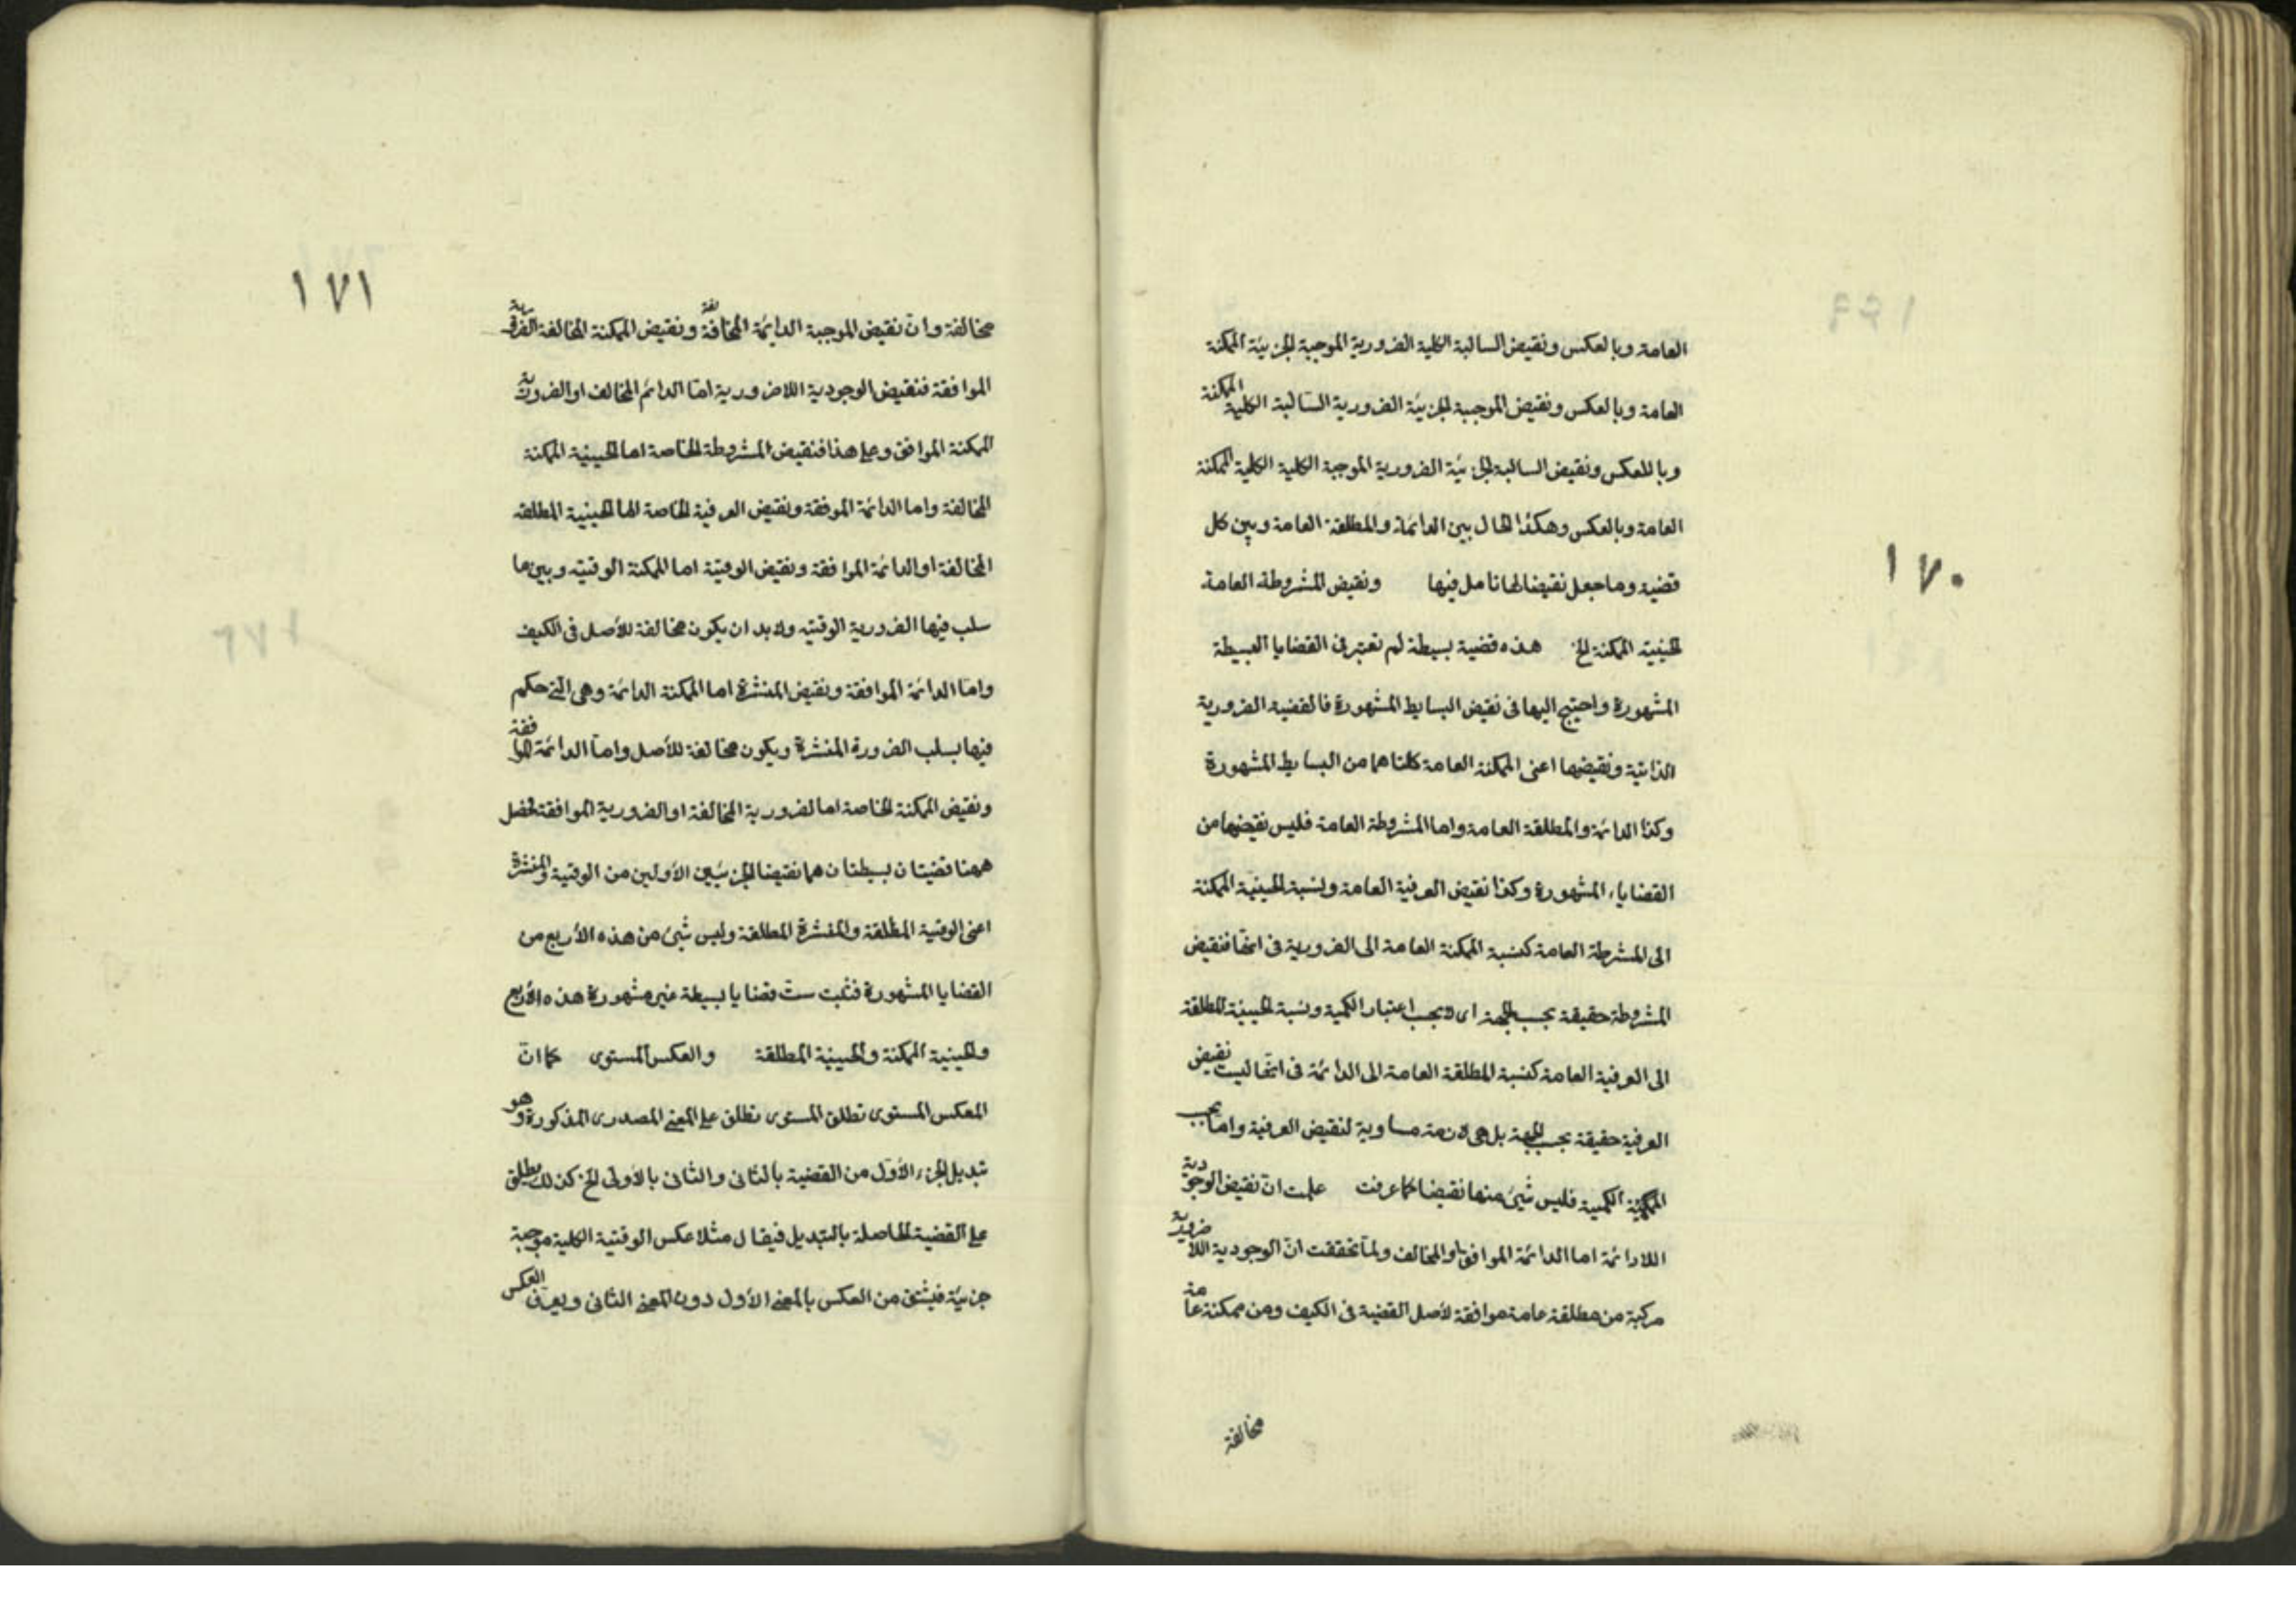 العامة وبالعكس ونقيض السالبة الكلية الضرورية الموجبة الجزئية الممكنة
العامة وبالعكس ونقيض الموجبة الجزئية الضرورية السالبة الكلية الممكنة
وباللعكس ونقيض السالبة الجزئية الضرورية الموجبة الكلية الكلية الممكنة
العامة وبالعكس وهكذا الحال بين الدائمة والمطلقة العامة وبين كل
قضية وما جعل نقيضا لها تامل فيها ونقيض المشروطة العامة
الحينية الممكنة الخ هذه قضية بسيطة لم تعتبر في القضايا البسيطة
المشهورة واحتيج اليها في نقيض البسايط المشهورة فالقضية الضرورية
الذاتية ونقيضها اعنى الممكنة العامة كلتاهما من البسايط المشهورة
وكذا الدائمة والمطلقة العامة واما المشروطة العامة فليس نقيضها من
القضايا المشهورة وكذا نقيض العرفية العامة ونسبة الحينية الممكنة
الى المشرطة العامة كنسبة الممكنة العامة الى الضرورية في انها نقيض
المشروطة حقيقة بحسب الجهة اى لا بحسب اعتبار الكمية ونسبة الحينية المطلقة
الى العرفية العامة كنسبة المطلقة العامة الى الدائمة في انها ليست نقيض
العرفية حقيقة بحسب الجهة بل هي لازمة مساوية لنقيض العرفية واما بحسب
الكمية فليس شيئ منها نقيضا كما عرفت علمت ان نقيض الوجودية
اللادائمة اما الدائمة الموافق او المخالف ولما تحققت ان الوجودية اللاضرورية
مركبة من مطلقة عامة موافقة لاصل القضية في الكيف ومن ممكنة عامة
مخالفة
١٧٠
١٧١
مخالفة وان نقيض الموجبة الدايمة المخالفة ونقيض الممكنة المخالفة الضرورية
الموافقة فنقيض الوجودية اللاضرورية اما الدائم المخالف او الضرورية
الممكنة الموافق وعلى هذا فنقيض المشروطة الخاصة اما الحينية الممكنة
المخالفة واما الدائمة الموفقة ونقيض العرفية الخاصة اما الحينية المطلقه
المخالفة او الدائمة الموافقة ونقيض الوقتية اما الممكنة الوقتيه وبين ما
سلب فيها الضرورية الوقتيه ولا بد ان يكون مخالفة للأصل في الكيف
واما الدائمة الموافقة ونقيض المنتشرة اما الممكنة الدائمة وهي التي حكم
فيها بسلب الضرورة المنتشرة ويكون مخالفة للأصل واما الدائمة الموافقة
ونقيض الممكنة الخاصة اما لضرورية المخالفة او الضرورية الموافقة تحصل
ههنا قضيتان بسيطتان هما نقيضا الجزئين الأولين من الوقتية والمنتشرة
اعنى الوقتية المطلقة والمنتشرة المطلقة وليس شيئ من هذه الأربع من
القضايا المشهورة فثبت ست قضايا بسيطة غير مشهورة هذه الأربع
والحينية الممكنة والحينية المطلقة والعكس المستوى كما ان
المعكس المستوى تطلق المستوى تطلق على المعنى المصدرى المذكورة وهو
تبديل الجزء الأول من القضية بالثانى والثانى بالأولى الخ كذلك يطلق
على القضية الحاصلة بالتبديل فيقال مثلا عكس الوقتية الكلية موجبة
جزئية فيشتق من العكس بالمعنى الأول دون المعنى الثانى ويعرف العكس